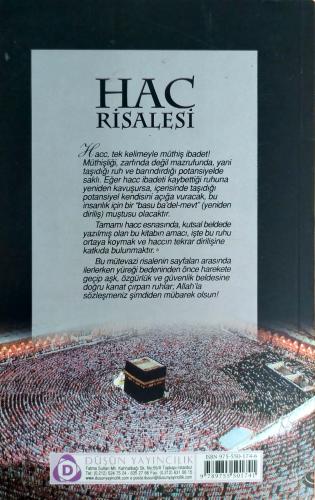 HAC
RİSALESİ
Hacc, tek kelimeyle müthiş ibadet!
Müthişliği, zarfında değil mazrufunda, yani
taşıdığı ruh ve barındırdığı potansiyelde
saklı. Eğer hacc ibadeti kaybettiği ruhuna
yeniden kavuşursa, içerisinde taşıdığı
potansiyel kendisini açığa vuracak, bu
insanlık için bir "basu ba'del-mevt" (yeniden
diriliş) muştusu olacaktır.
Tamamı hacc esnasında, kutsal beldede
yazılmış olan bu kitabın amacı, işte bu ruhu
ortaya koymak ve haccın tekrar dirilişine
katkıda bulunmaktır.
Bu mütevazi risalenin sayfaları arasında
ilerlerken yüreği bedeninden önce harekete
geçip aşk, özgürlük ve güvenlik beldesine
doğru kanat çırpan ruhlar, Allah'la
sözleşmeniz şimdiden mübarek olsun!
ISBN 975-550-174-6
9789755501741
DÜŞÜN YAYINCILIK